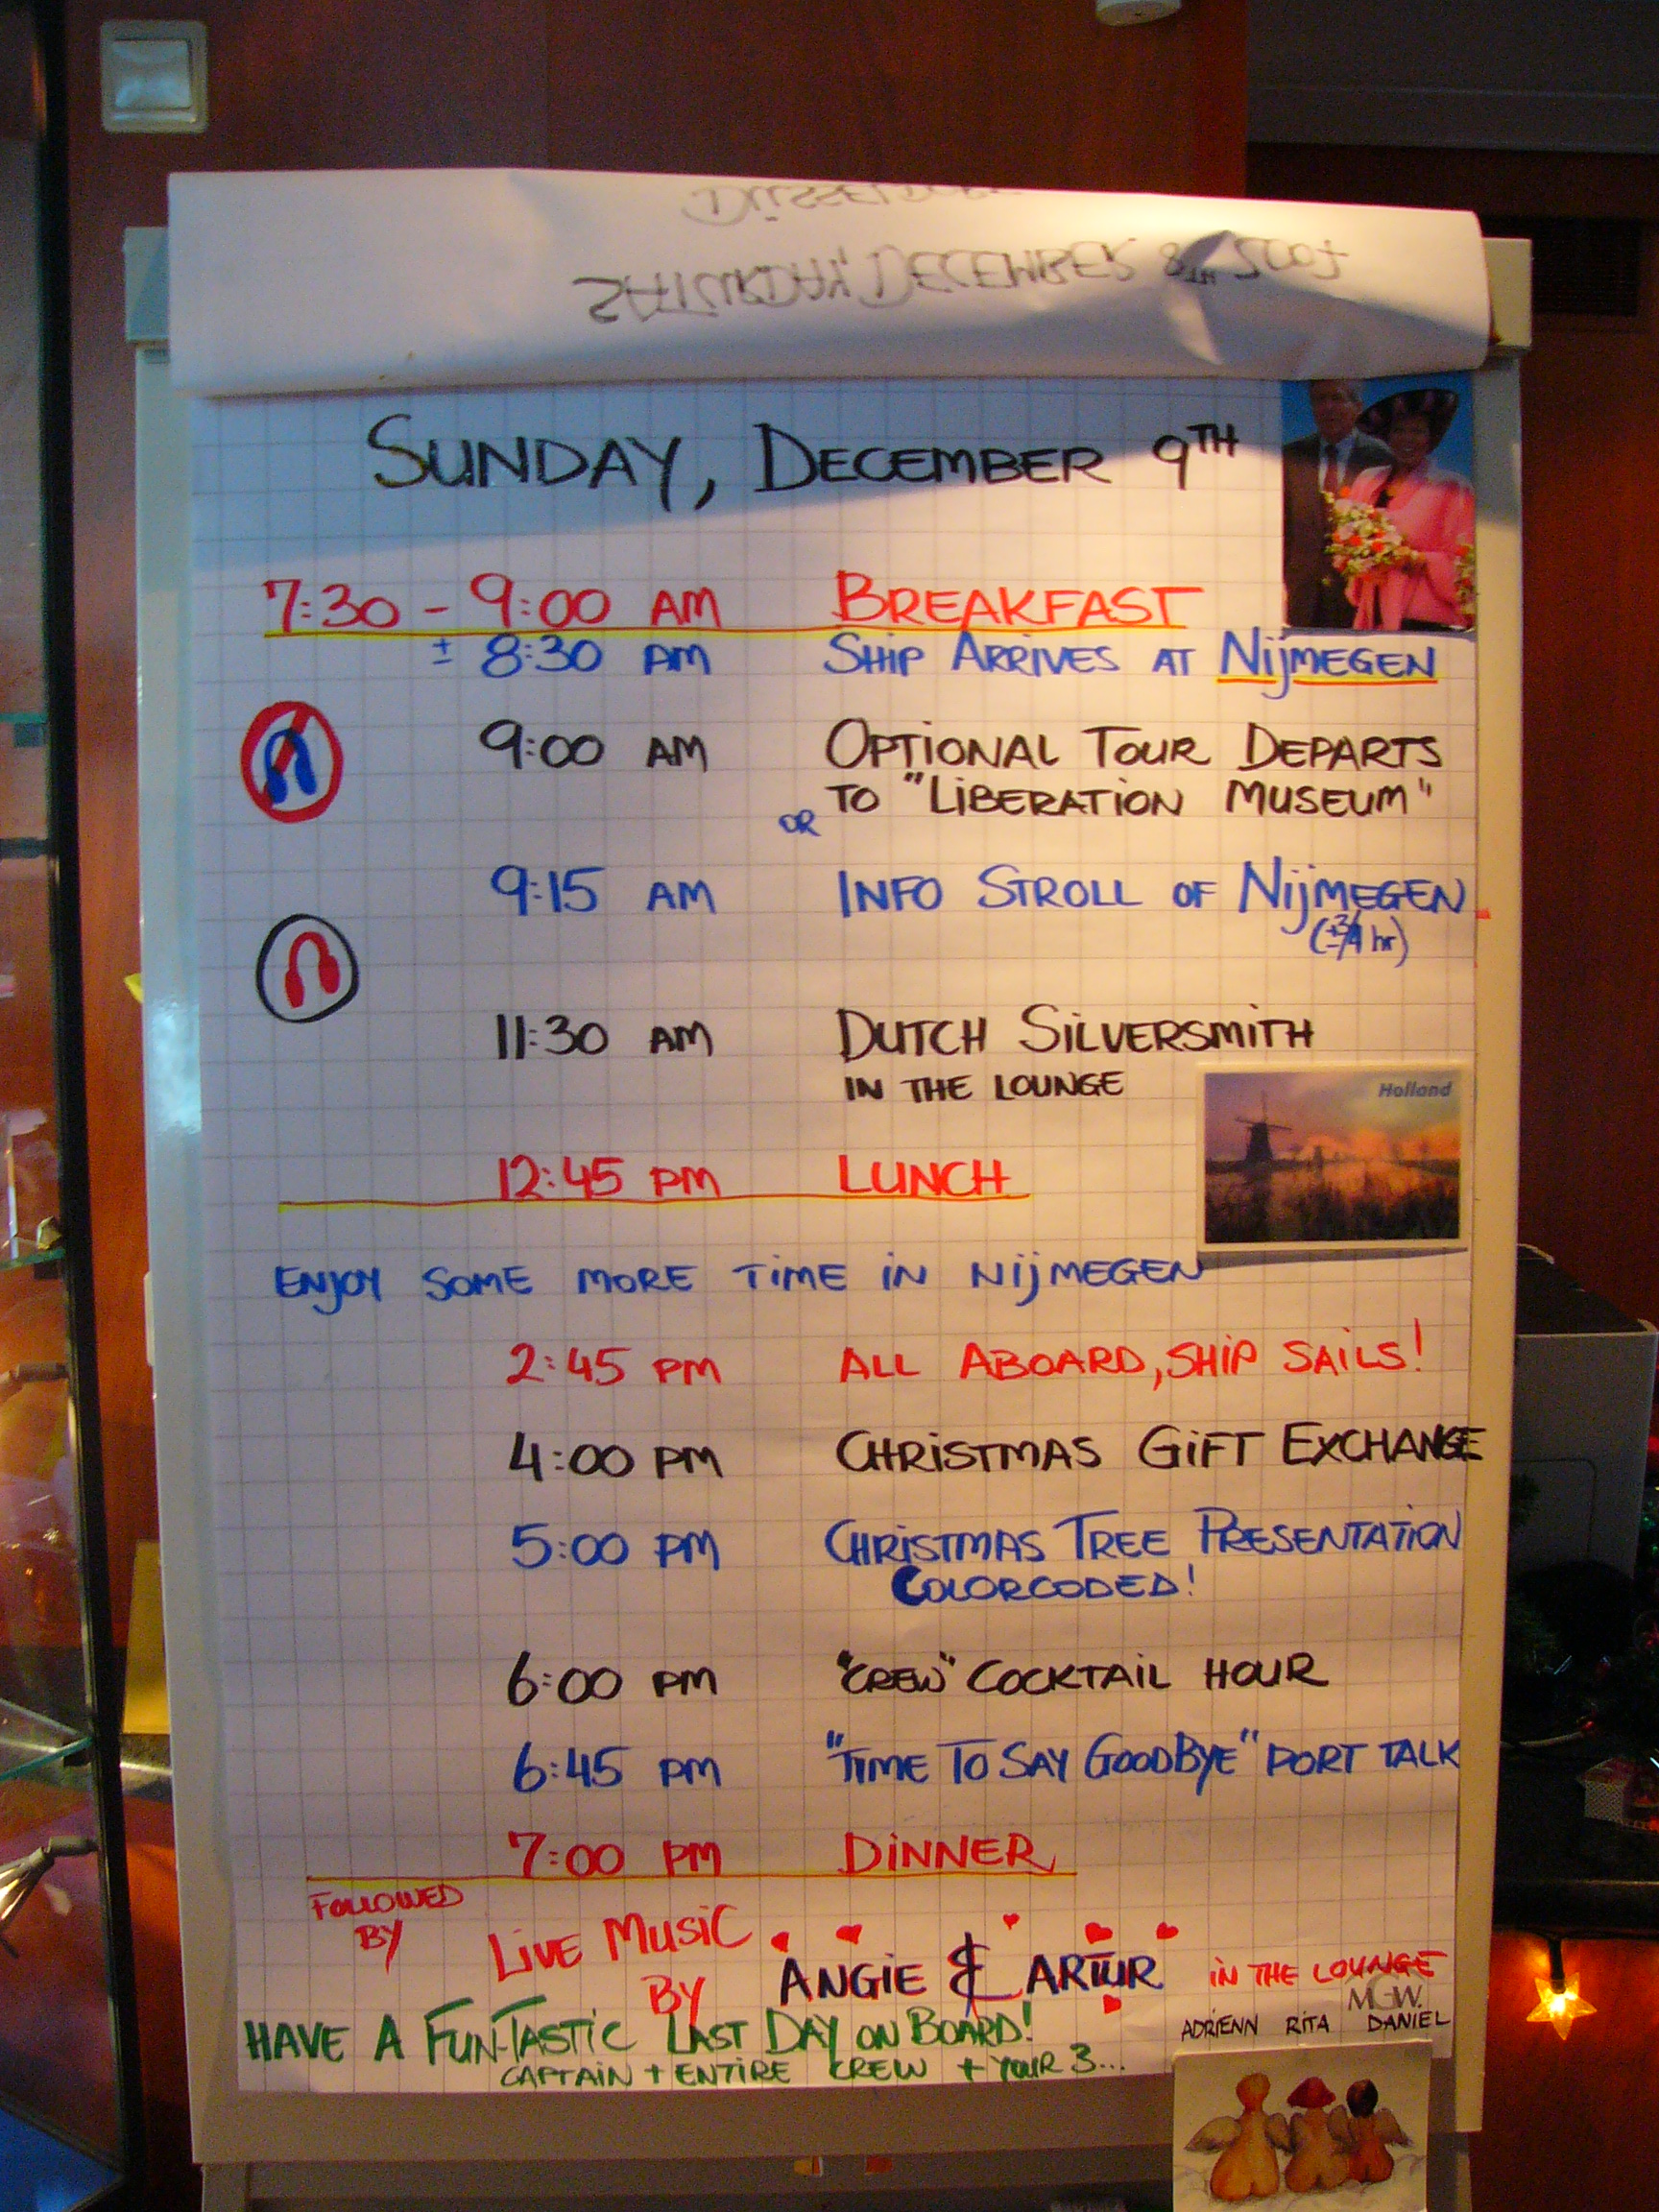 DÜSSELDORF
SATURDAY, DECEMBER 8TH 2007
SUNDAY, DECEMBER 9TH
7:30 - 9:00 AM BREAKFAST
± 8:30 AM SHIP ARRIVES AT NIJMEGEN
9:00 AM OPTIONAL TOUR DEPARTS
TO "LIBERATION MUSEUM"
OR
9:15 AM INFO STROLL OF NIJMEGEN
(±3/4 hr)
11:30 AM DUTCH SILVERSMITH
IN THE LOUNGE
Holland
12:45 PM LUNCH
ENJOY SOME MORE TIME IN NIJMEGEN
2:45 PM ALL ABOARD, SHIP SAILS!
4:00 PM CHRISTMAS GIFT EXCHANGE
5:00 PM CHRISTMAS TREE PRESENTATION
COLORCODED!
6:00 PM "CREW" COCKTAIL HOUR
6:45 PM "TIME TO SAY GOODBYE" PORT TALK
7:00 PM DINNER
FOLLOWED
BY
LIVE MUSIC
BY ANGIE & ARTUR IN THE LOUNGE
MGW.
HAVE A FUN-TASTIC LAST DAY ON BOARD!
ADRIENN RITA DANIEL
CAPTAIN + ENTIRE CREW + YOUR 3...